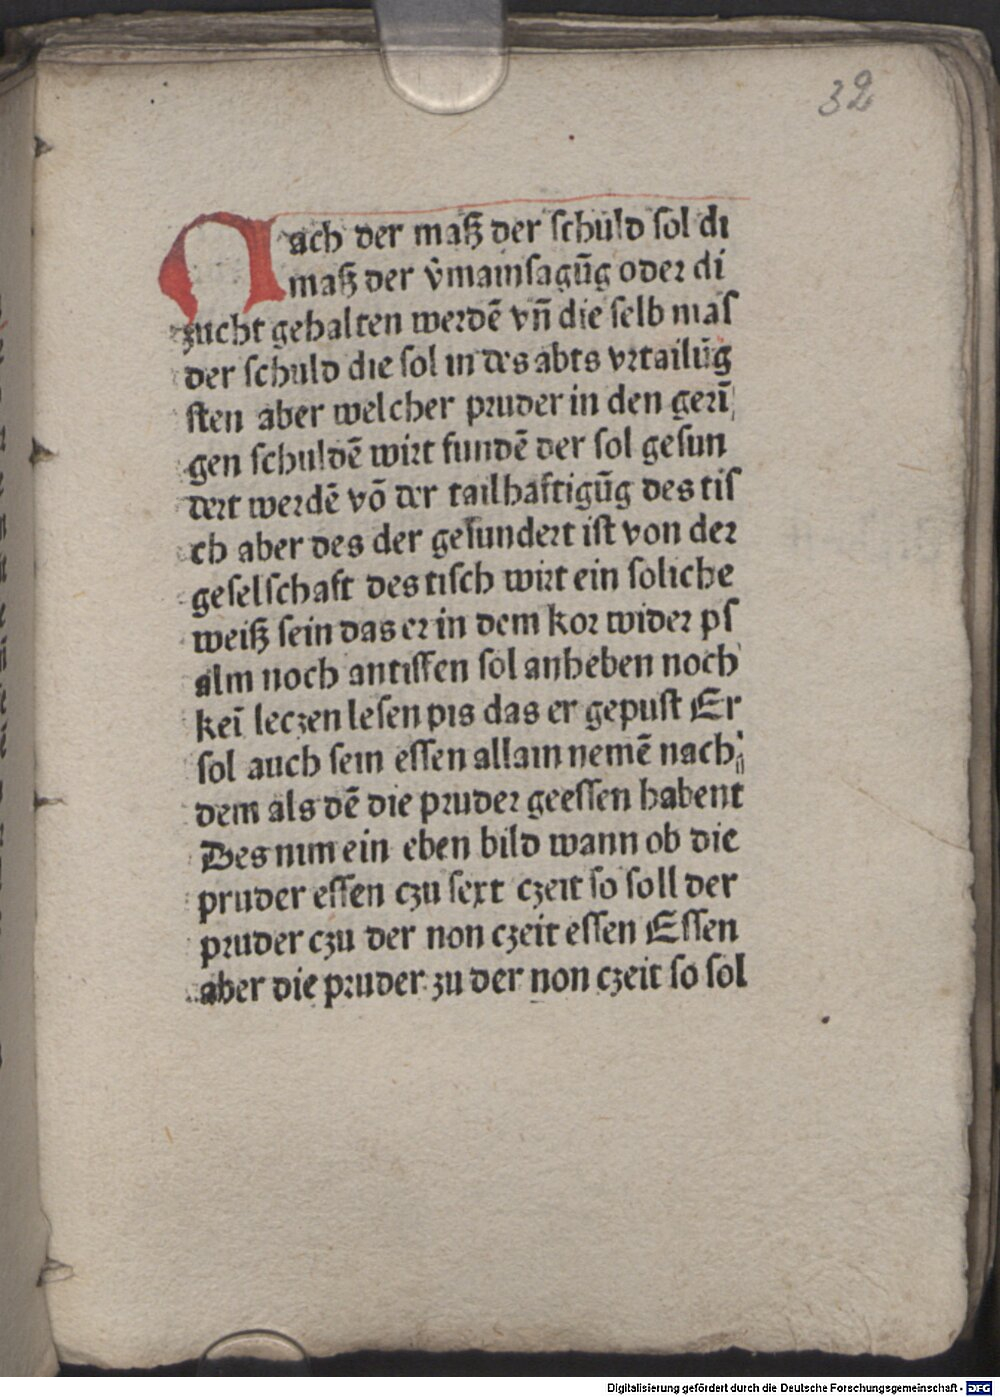 32
Nach der maß der schuld sol di
maß der v̊mainsagūg oder di
zucht gehalten werdē vn̄ die selb mas
der schuld die sol in des abts vrtailūg
sten aber welcher pruder in den gerī
gen schuldē wirt fundē der sol gesun
dert werdē vō der tailhaftigūg des tis
ch aber des der gesundert ist von der
geselschaft des tisch wirt ein soliche
weiß sein das er in dem kor wider ps
alm noch antiffen sol anheben noch
keī leczen lesen pis das er gepust Er
sol auch sein essen allain nemē nach
dem als dē die pruder geessen habent
Des nim ein eben bild wann ob die
pruder essen czu sext czeit so soll der
pruder czu der non czeit essen Essen
aber die pruder zu der non czeit so sol
Digitalisierung gefördert durch die Deutsche Forschungsgemeinschaft - DFG